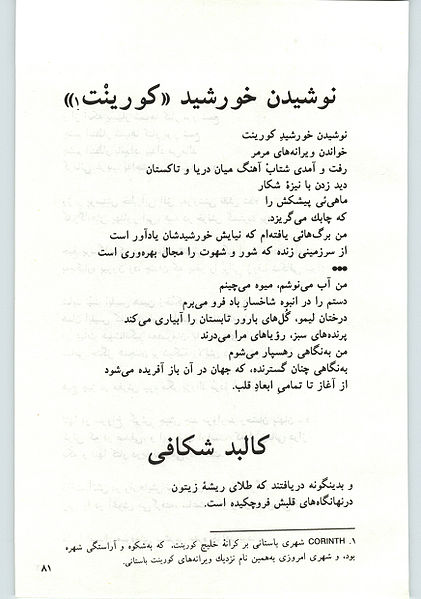 نوشیدن خورشید «کورینْت۱»
نوشیدن خورشیدِ کورینت
خواندن ویرانه‌های مرمر
رفت و آمدی شتابْ آهنگ میان دریا و تاکستان
دید زدن با نیزهٔ شکار
ماهی‌ئی پیشکش را
که چابك می‌گریزد.
من برگ‌هائی یافته‌ام که نیایش خورشیدشان یادآور است
از سرزمینی زنده که شور و شهوت را مجال بهره‌وری است
•••
من آب می‌نوشم، میوه می‌چینم
دستم را در انبوه شاخسارِ باد فرو می‌برم
درختان لیمو، گُل‌های بارور تابستان را آبیاری می‌کند
پرنده‌های سبز، رؤیاهای مرا می‌درند
من به‌نگاهی رهسپار می‌شوم
به‌نگاهی چنان گسترنده، که جهان در آن باز آفریده می‌شود
از آغاز تا تمامیِ ابعادِ قلب.
کالبد شکافی
و بدینگونه دریافتند که طلای ریشهٔ زیتون
درنهانگاه‌های قلبش فروچکیده است.
۱. CORINTH شهری باستانی بر کرانهٔ خلیج کورینت، که به‌شکوه و آراستگی شهره
بود، و شهری امروزی به‌همین نام نزدیك ویرانه‌های کورینت باستانی.
۸۱